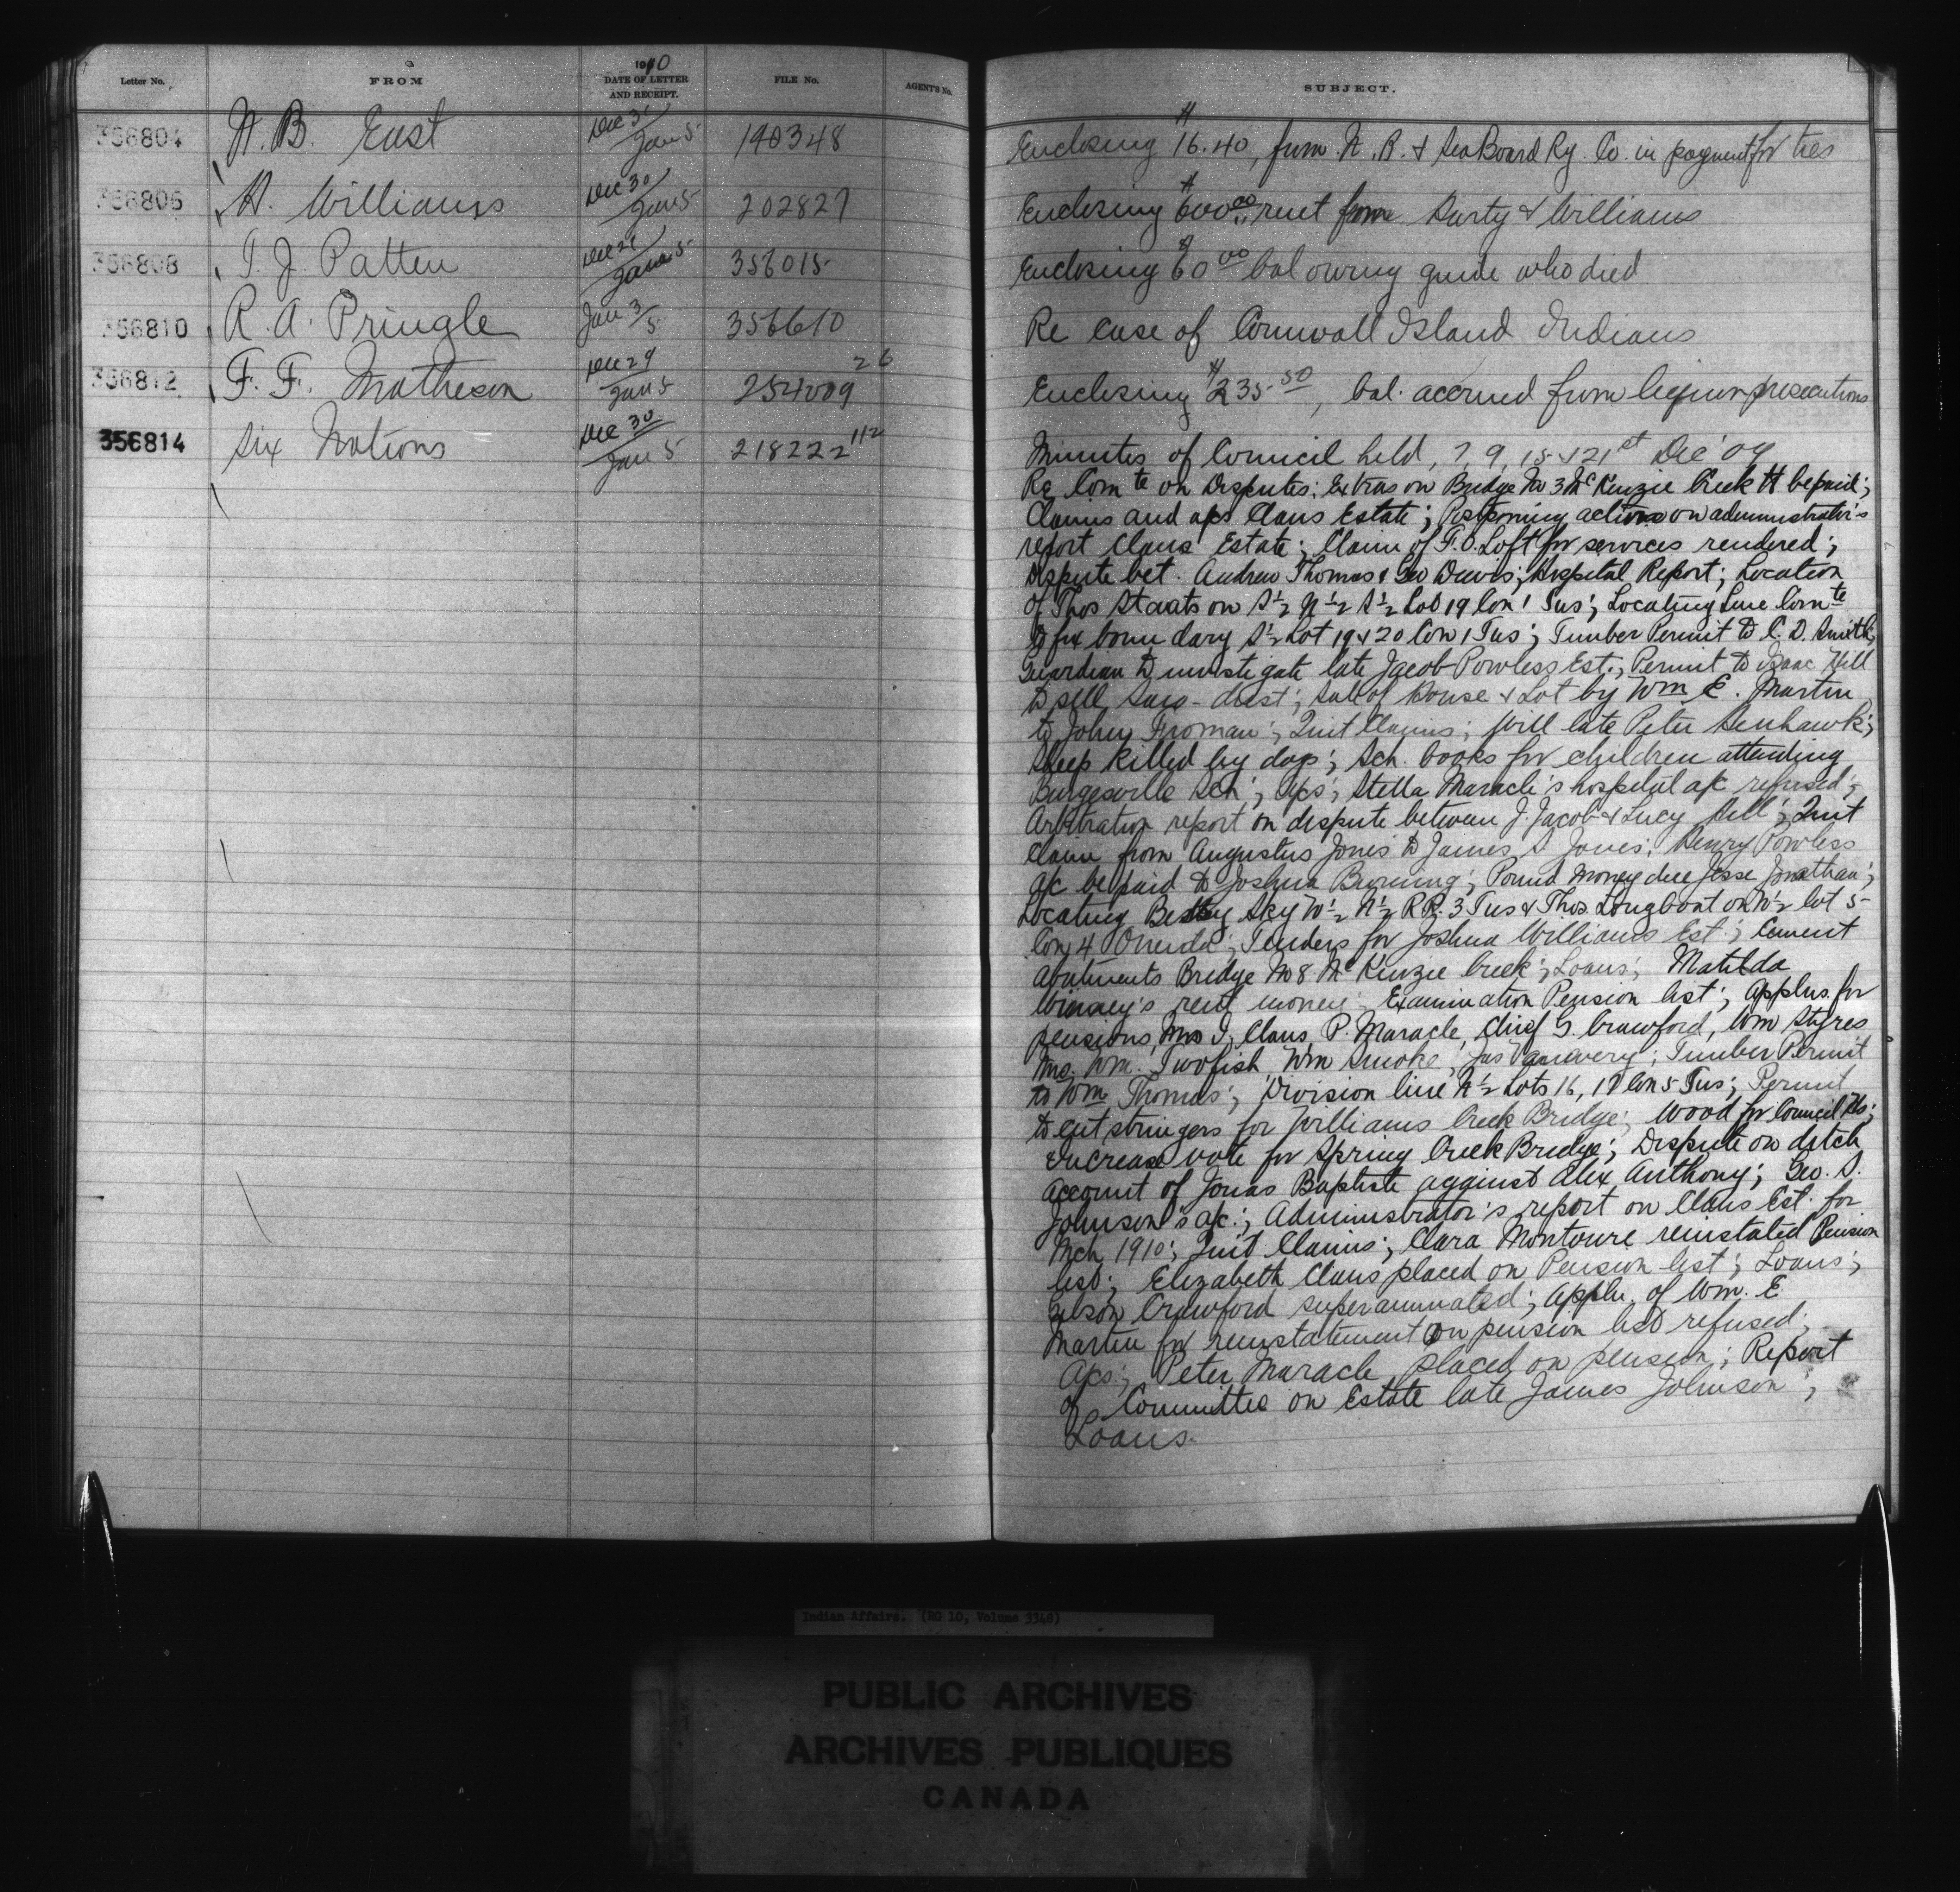 Letter No. FROM 1910 DATE OF LETTER AND RECEIPT. FILE No. AGENT'S No. SUBJECT.
356804 N. B. East Dec 31 Jan 5 140348 Enclosing $16.40, from N. B. & SeaBoard Ry. Co. in payment for ties
356806 H. Williams Dec 30 Jan 5 202827 Enclosing $600.00 rent from & Williams
356808 T. J. Patten Dec 21 Jan 5 356015 Enclosing $60.00 bal owing guide who died
356810 R. A. Pringle Jan 3/5 356610 Re case of Cornwall Island Indians
356812 F. F. Matheson Dec 29 Jan 5 254009 26 Enclosing $235.50, bal. accrued from liquor prosecutions
356814 Six Nations Dec 30 Jan 5 218222 112 Minutes of Council held, 7, 9, 15 & 21st Dec '09
Re Comte on Disputes; Extras on Bridge No 3 McKenzie Creek be paid;
Claims and a/cs Claus Estate; Postponing action on administrator's
report Claus Estate; Claim of F. O. Loft for services rendered;
Dispute bet. Andrew Thomas & Geo Davis; Hospital Report; Location
of Thos Staats on S½ N½ S½ Lot 19 Con 1 Tus; Locating Line Comte
to fix boundary S½ Lot 19 & 20 Con 1 Tus; Timber Permit to C. D. Smith;
Guardian to investigate late Jacob Powless Est.; Permit to Isaac Hill
to sell saw-dust; Sale of House & Lot by Wm E. Martin
to John Froman; Quit Claims; Will late Peter Senhawk;
Sheep killed by dogs; Sch. books for children attending
Burgesville Sch; a/cs; Stella Maracle's hospital a/c refused;
Arbitration report on dispute between J. Jacob & Lucy Sill; Quit
Claim from Augustus Jones to James S Jones; Henry Powless
a/c be paid to Joshua Burning; Pound money due Jesse Jonathan;
Locating Betsy Sky W½ N½ R R. 3 Tus & Thos. Longboat on N½ lot 5
Con 4 Oneida; Tenders for Joshua Williams Est.; Cement
abutments Bridge No 8 McKenzie Creek; Loans; Matilda
rent money; Examination Pension list; Applns. for
pensions, Mrs J. Claus, P. Maracle, Chief G. Crawford, Wm Styres
Mrs. Wm. Twofish, Wm Smoke, Jas Vanevery; Timber Permit
to Wm Thomas; Division line N½ Lots 16, 17 Con 5 Tus; Permit
to cut stringers for Williams Creek Bridge; Wood for Council Hs;
Increase vote for Spring Creek Bridge; Dispute on ditch
account of Jonas Baptiste against Alex Anthony; Geo. S.
Johnson's a/c.; Administrator's report on Claus Est. for
Mch 1910; Quit Claims; Clara Montoure reinstated Pension
list; Elizabeth Claus placed on Pension list; Loans;
Crawford superannuated; Appln. of Wm. E
Martin for reinstatement on pension list refused;
A/cs; Peter Maracle placed on pension; Report
of Committee on Estate late James Johnson;
Loans.
Indian Affairs. (RG 10, Volume 3348)
PUBLIC ARCHIVES
ARCHIVES PUBLIQUES
CANADA